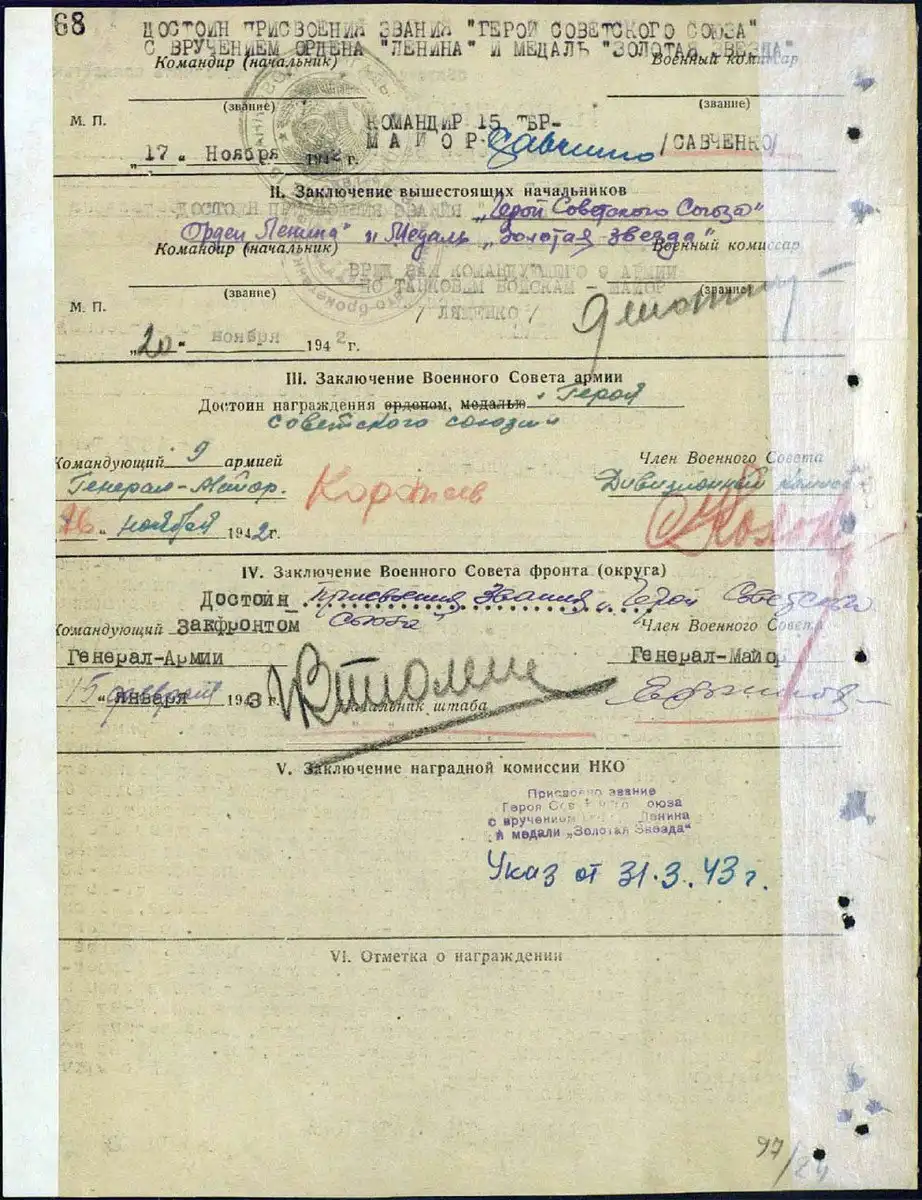 68
ДОСТОИН ПРИСВОЕНИЯ ЗВАНИЯ "ГЕРОЙ СОВЕТСКОГО СОЮЗА"
С ВРУЧЕНИЕМ ОРДЕНА "ЛЕНИНА" И МЕДАЛЬ "ЗОЛОТАЯ ЗВЕЗДА"
Командир (начальник) Военный комиссар
(звание) (звание)
М. П. КОМАНДИР 15 ТБР-
МАЙОР Савченко /САВЧЕНКО/
„17." Ноября 1942 г.
II. Заключение вышестоящих начальников
ДОСТОЕН ПРИСВОЕНИЯ ЗВАНИЯ „Герой Советского Союза"
Орден Ленина" и Медаль „Золотая звезда"
Командир (начальник) Военный комиссар
ВРИД ЗАМ КОМАНДУЮЩЕГО 9 АРМИИ
(звание) ПО ТАНКОВЫМ ВОЙСКАМ - МАЙОР (звание)
М. П. /ЛЯЩЕНКО/
„20" ноября 1942 г.
III. Заключение Военного Совета армии
Достоин награждения орденом, медалью „Героя
советского союза"
Командующий 9 армией Член Военного Совета
Генерал-Майор. Коротеев Дивизионный
26 „ ноября 1942 г.
IV. Заключение Военного Совета фронта (округа)
Достоин присвоения звания „Герой Советского
Союза"
Командующий Закфронтом Член Военного Совета
Генерал-Армии Генерал-Майор
15 " января февраля 1943 г. Тюленев Ефимов
Начальник штаба
V. Заключение наградной комиссии НКО
Присвоено звание
Героя Советского Союза
с вручением Ленина
и медали „Золотая Звезда"
Указ от 31.3.43 г.
VI. Отметка о награждении
97/24